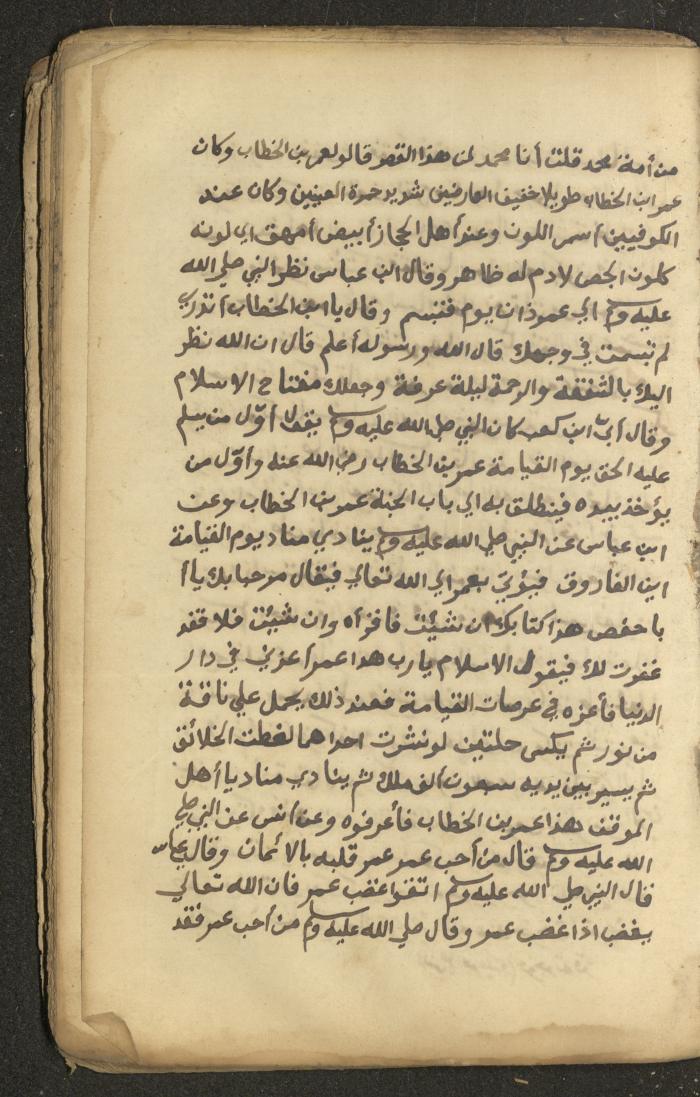 من أمة محمد قلت أنا محمد لمن هذا القصر قالو لعمر بن الخطاب وكان
عمر ابن الخطاب طويلا خفيف العارضين شديد حمرة العينين وكان عند
الكوفيين أسمر اللون وعند أهل الحجاز أبيض أمهق اي لونه
كلون الجص لا دم له ظاهر وقال ابن عباس نظر النبي صلي الله
عليه وسلم الي عمر ذات يوم فتبسم وقال يا ابن الخطاب أتدري
لم تبسمت في وجهك قال الله ورسوله أعلم قال ان الله نظر
اليك بالشفقة والرحمة ليلة عرفة وجعلك مفتاح الاسلام
وقال أبي ابن كعب كان النبي صلي الله عليه وسلم يقول أوّل من يسلم
عليه الحق يوم القيامة عمر بن الخطاب رضي الله عنه وأوّل من
يؤخذ بيده فينطلق به الي باب الجنة عمر بن الخطاب وعن
ابن عباس عن النبي صلي الله عليه وسلم ينادي مناد يوم القيامة
اين الفاروق فيؤتي بعمر الي الله تعالي فيقال مرحبا بك يا أ
با حفص هذا كتابك ان شئت فاقرأه وان شئت فلا فقد
غفرت لك فيقول الاسلام يا رب هذا عمر أعزني في دار
الدنيا فأعزه في عرصات القيامة فعند ذلك يحمل علي ناقة
من نور ثم يكسي حلتين لو نشرت احداهما لغطت الخلائق
ثم يسير بين يديه سبعون ألف ملك ثم ينادي مناد يا أهل
الموقف هذا عمر بن الخطاب فأعرفوه وعن أنس عن النبي صلي
الله عليه وسلم قال من أحب عمر عمر قلبه بالائمان وقال
قال النبي صلي الله عليه وسلم اتقوا غضب عمر فان الله تعالي
يغضب اذا غضب عمر وقال صلي الله عليه وسلم من أحب عمر فقد